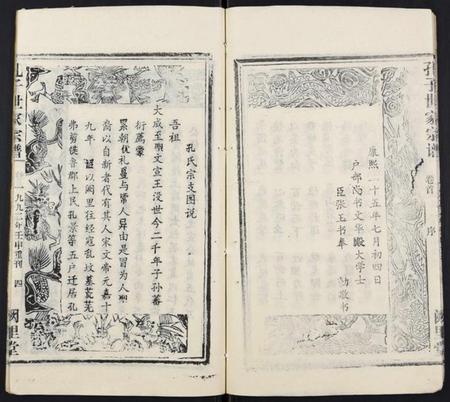 孔子世家宗谱 卷首 序
阙里堂
康熙二十五年七月初四日
户部尚书文华殿大学士
臣张玉书奉
勅敬书
孔氏宗支图说
吾祖
大成至聖文宣王没世今二千年子孙蕃
衍屬蒙
累朝优礼是与常人异由是冒为人聖
裔以自新者代有其人宋文帝元嘉十
九年 詔以阙里往经寇乱坟墓荒芜
弗剪徒鲁郡上民孔景等五户迁居孔
孔子世家宗谱
一九九二年壬申重刊 四
阙里堂